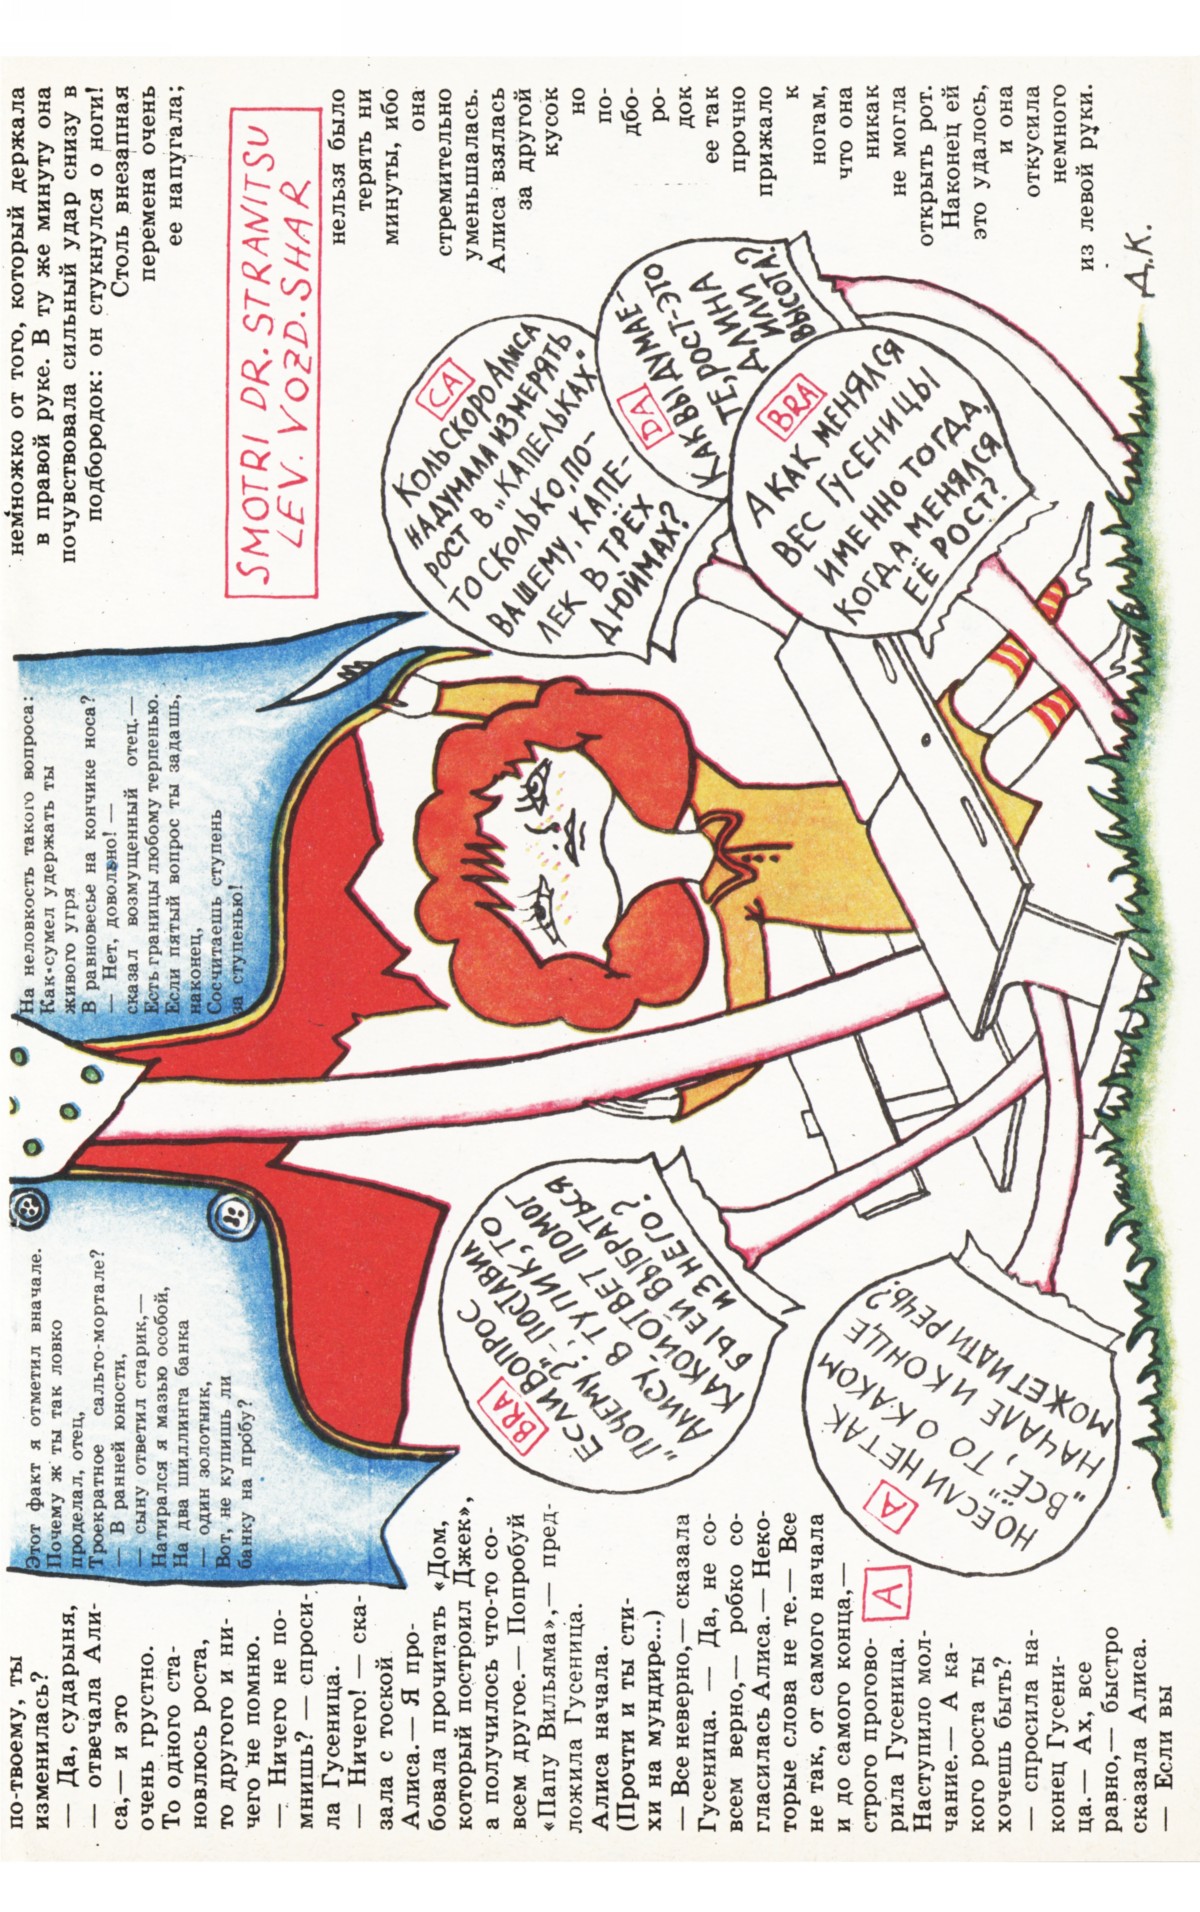 по-твоему, ты
изменилась?
— Да, сударыня,
— отвечала Али-
са,— и это
очень грустно.
То одного ста-
новлюсь роста,
то другого и ни-
чего не помню.
— Ничего не по-
мнишь? — спроси-
ла Гусеница.
— Ничего! — ска-
зала с тоской
Алиса.— Я про-
бовала прочитать «Дом,
который построил Джек»,
а получилось что-то со-
всем другое.— Попробуй
«Папу Вильяма»,— пред-
ложила Гусеница.
Алиса начала.
(Прочти и ты сти-
хи на мундире...)
— Все неверно,— сказала
Гусеница. — Да, не со-
всем верно,— робко со-
гласилась Алиса.— Неко-
торые слова не те.— Все
не так, от самого начала
и до самого конца,—
строго прогово-
рила Гусеница.
A
Наступило мол-
чание.— А ка-
кого роста ты
хочешь быть?
— спросила на-
конец Гусени-
ца.— Ах, все
равно,— быстро
сказала Алиса.
— Если вы
Этот факт я отметил вначале.
Почему ж ты так ловко
проделал, отец,
Троекратное сальто-мортале?
— В ранней юности,
— сыну ответил старик,—
Натирался я мазью особой,
На два шиллинга банка
— один золотник,
Вот, не купишь ли
банку на пробу?
На неловкость такого вопроса:
Как сумел удержать ты
живого угря
В равновесье на кончике носа?
— Нет, довольно! —
сказал возмущенный отец.—
Есть границы любому терпенью.
Если пятый вопрос ты задашь,
наконец,
Сосчитаешь ступень
за ступенью!
BRA
ЕСЛИ ВОПРОС
„ПОЧЕМУ?"– ПОСТАВИЛ
АЛИСУ В ТУПИК, ТО
КАКОЙ ОТВЕТ ПОМОГ
БЫ ЕЙ ВЫБРАТЬСЯ
ИЗ НЕГО?
A
НО ЕСЛИ НЕ ТАК
„ВСЁ", ТО О КАКОМ
НАЧАЛЕ И КОНЦЕ
МОЖЕТ ИДТИ РЕЧЬ?
немножко от того, который держала
в правой руке. В ту же минуту она
почувствовала сильный удар снизу в
подбородок: он стукнулся о ноги!
Столь внезапная
перемена очень
ее напугала;
SMOTRI DR. STRANITSU
LEV. VOZD. SHAR
нельзя было
терять ни
минуты, ибо
она
стремительно
уменьшалась.
Алиса взялась
за другой
кусок
но
по-
дбо-
ро-
док
ее так
прочно
прижало
к
ногам,
что она
никак
не могла
открыть рот.
Наконец ей
это удалось,
и она
откусила
немного
из левой руки.
CA
КОЛЬ СКОРО АЛИСА
НАДУМАЛА ИЗМЕРЯТЬ
РОСТ В „КАПЕЛЬКАХ"
ТО СКОЛЬКО, ПО-
ВАШЕМУ, КАПЕ-
ЛЕК В ТРЁХ
ДЮЙМАХ?
DA
КАК ВЫ ДУМАЕ-
ТЕ, РОСТ-ЭТО
ДЛИНА
ИЛИ
ВЫСОТА?
BRA
А КАК МЕНЯЛСЯ
ВЕС ГУСЕНИЦЫ
ИМЕННО ТОГДА,
КОГДА МЕНЯЛСЯ
ЕЁ РОСТ?
Д.К.